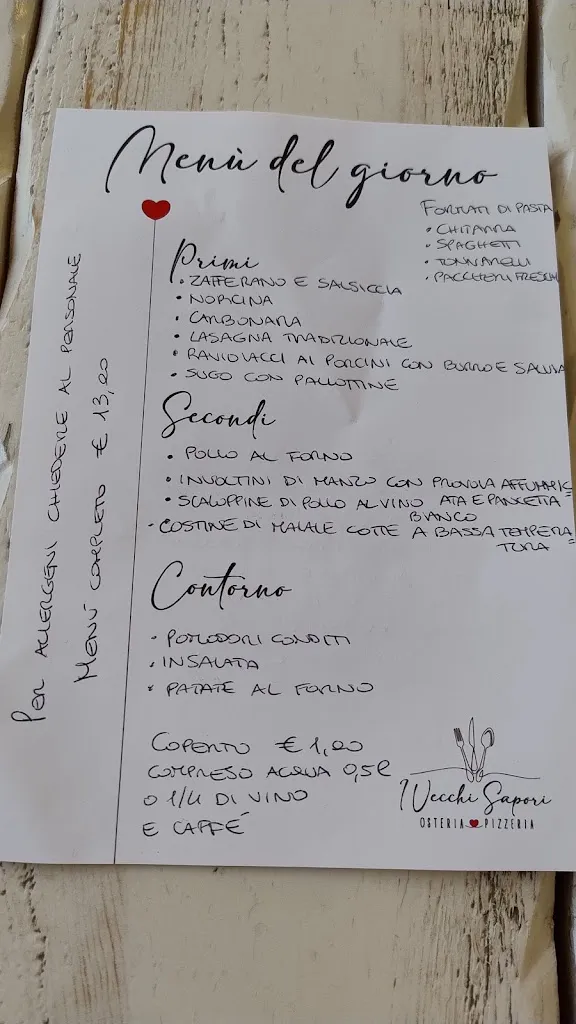 Menù del giorno
FORMATI DI PASTA
• CHITARRA
• SPAGHETTI
• TONNARELLI
• PACCHERI FRESCHI
Primi
• ZAFFERANO E SALSICCIA
• NORCINA
• CARBONARA
• LASAGNA TRADIZIONALE
• RAVIOLACCI AI PORCINI CON BURRO E SALVIA
• SUGO CON PALLOTTINE
Secondi
• POLLO AL FORNO
• INVOLTINI DI MANZO CON PROVOLA AFFUMIC=
ATA E PANCETTA
• SCALOPPINE DI POLLO AL VINO
BIANCO
• COSTINE DI MAIALE COTTE A BASSA TEMPERA=
TURA
Contorno
• POMODORI CONDITI
• INSALATA
• PATATE AL FORNO
COPERTO € 1,20
COMPRESO ACQUA 0,5l
O 1/4 DI VINO
E CAFFÉ
I Vecchi Sapori
OSTERIA PIZZERIA
PER ALLERGENI CHIEDERE AL PERSONALE
MENÙ COMPLETO € 13,20